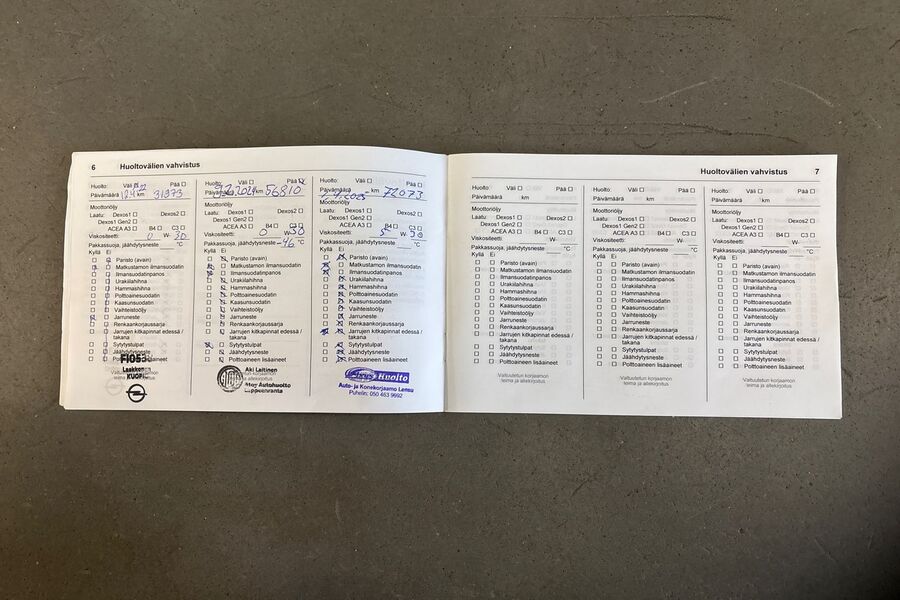 6 Huoltovälien vahvistus
Huolto: Väli Pää
Päivämäärä km 31973
Moottoriöljy
Laatu: Dexos1 Dexos2
Dexos1 Gen2
ACEA A3 B4 C3
Viskositeetti: 0 W- 30
Pakkassuoja, jäähdytysneste °C
Kyllä Ei
Paristo (avain)
Matkustamon ilmansuodatin
Ilmansuodatinpanos
Urakiilahihna
Hammashihna
Polttoainesuodatin
Kaasunsuodatin
Vaihteistoöljy
Jarruneste
Renkaankorjaussarja
Jarrujen kitkapinnat edessä /
takana
Sytytystulpat
Jäähdytysneste
Polttoaineen lisäaineet
Laakkonen
KUOPIO
OPEL
Huolto: Väli Pää
Päivämäärä 9.2.2024 km 56810
Moottoriöljy
Laatu: Dexos1 Dexos2
Dexos1 Gen2
ACEA A3 B4 C3
Viskositeetti: 0 W- 30
Pakkassuoja, jäähdytysneste -46 °C
Kyllä Ei
Paristo (avain)
Matkustamon ilmansuodatin
Ilmansuodatinpanos
Urakiilahihna
Hammashihna
Polttoainesuodatin
Kaasunsuodatin
Vaihteistoöljy
Jarruneste
Renkaankorjaussarja
Jarrujen kitkapinnat edessä /
takana
Sytytystulpat
Jäähdytysneste
Polttoaineen lisäaineet
Aki Laitinen
Autohuolto
Lappeenranta
Huolto: Väli Pää
Päivämäärä km 72073
Moottoriöljy
Laatu: Dexos1 Dexos2
Dexos1 Gen2
ACEA A3 B4 C3
Viskositeetti: 5 W- 30
Pakkassuoja, jäähdytysneste °C
Kyllä Ei
Paristo (avain)
Matkustamon ilmansuodatin
Ilmansuodatinpanos
Urakiilahihna
Hammashihna
Polttoainesuodatin
Kaasunsuodatin
Vaihteistoöljy
Jarruneste
Renkaankorjaussarja
Jarrujen kitkapinnat edessä /
takana
Sytytystulpat
Jäähdytysneste
Polttoaineen lisäaineet
Huolto
Auto- ja Konekorjaamo Lensu
Puhelin: 050 463 9992
Huoltovälien vahvistus 7
Huolto: Väli Pää
Päivämäärä km
Moottoriöljy
Laatu: Dexos1 Dexos2
Dexos1 Gen2
ACEA A3 B4 C3
Viskositeetti: W-
Pakkassuoja, jäähdytysneste °C
Kyllä Ei
Paristo (avain)
Matkustamon ilmansuodatin
Ilmansuodatinpanos
Urakiilahihna
Hammashihna
Polttoainesuodatin
Kaasunsuodatin
Vaihteistoöljy
Jarruneste
Renkaankorjaussarja
Jarrujen kitkapinnat edessä /
takana
Sytytystulpat
Jäähdytysneste
Polttoaineen lisäaineet
Valtuutetun korjaamon
leima ja allekirjoitus
Huolto: Väli Pää
Päivämäärä km
Moottoriöljy
Laatu: Dexos1 Dexos2
Dexos1 Gen2
ACEA A3 B4 C3
Viskositeetti: W-
Pakkassuoja, jäähdytysneste °C
Kyllä Ei
Paristo (avain)
Matkustamon ilmansuodatin
Ilmansuodatinpanos
Urakiilahihna
Hammashihna
Polttoainesuodatin
Kaasunsuodatin
Vaihteistoöljy
Jarruneste
Renkaankorjaussarja
Jarrujen kitkapinnat edessä /
takana
Sytytystulpat
Jäähdytysneste
Polttoaineen lisäaineet
Valtuutetun korjaamon
leima ja allekirjoitus
Huolto: Väli Pää
Päivämäärä km
Moottoriöljy
Laatu: Dexos1 Dexos2
Dexos1 Gen2
ACEA A3 B4 C3
Viskositeetti: W-
Pakkassuoja, jäähdytysneste °C
Kyllä Ei
Paristo (avain)
Matkustamon ilmansuodatin
Ilmansuodatinpanos
Urakiilahihna
Hammashihna
Polttoainesuodatin
Kaasunsuodatin
Vaihteistoöljy
Jarruneste
Renkaankorjaussarja
Jarrujen kitkapinnat edessä /
takana
Sytytystulpat
Jäähdytysneste
Polttoaineen lisäaineet
Valtuutetun korjaamon
leima ja allekirjoitus